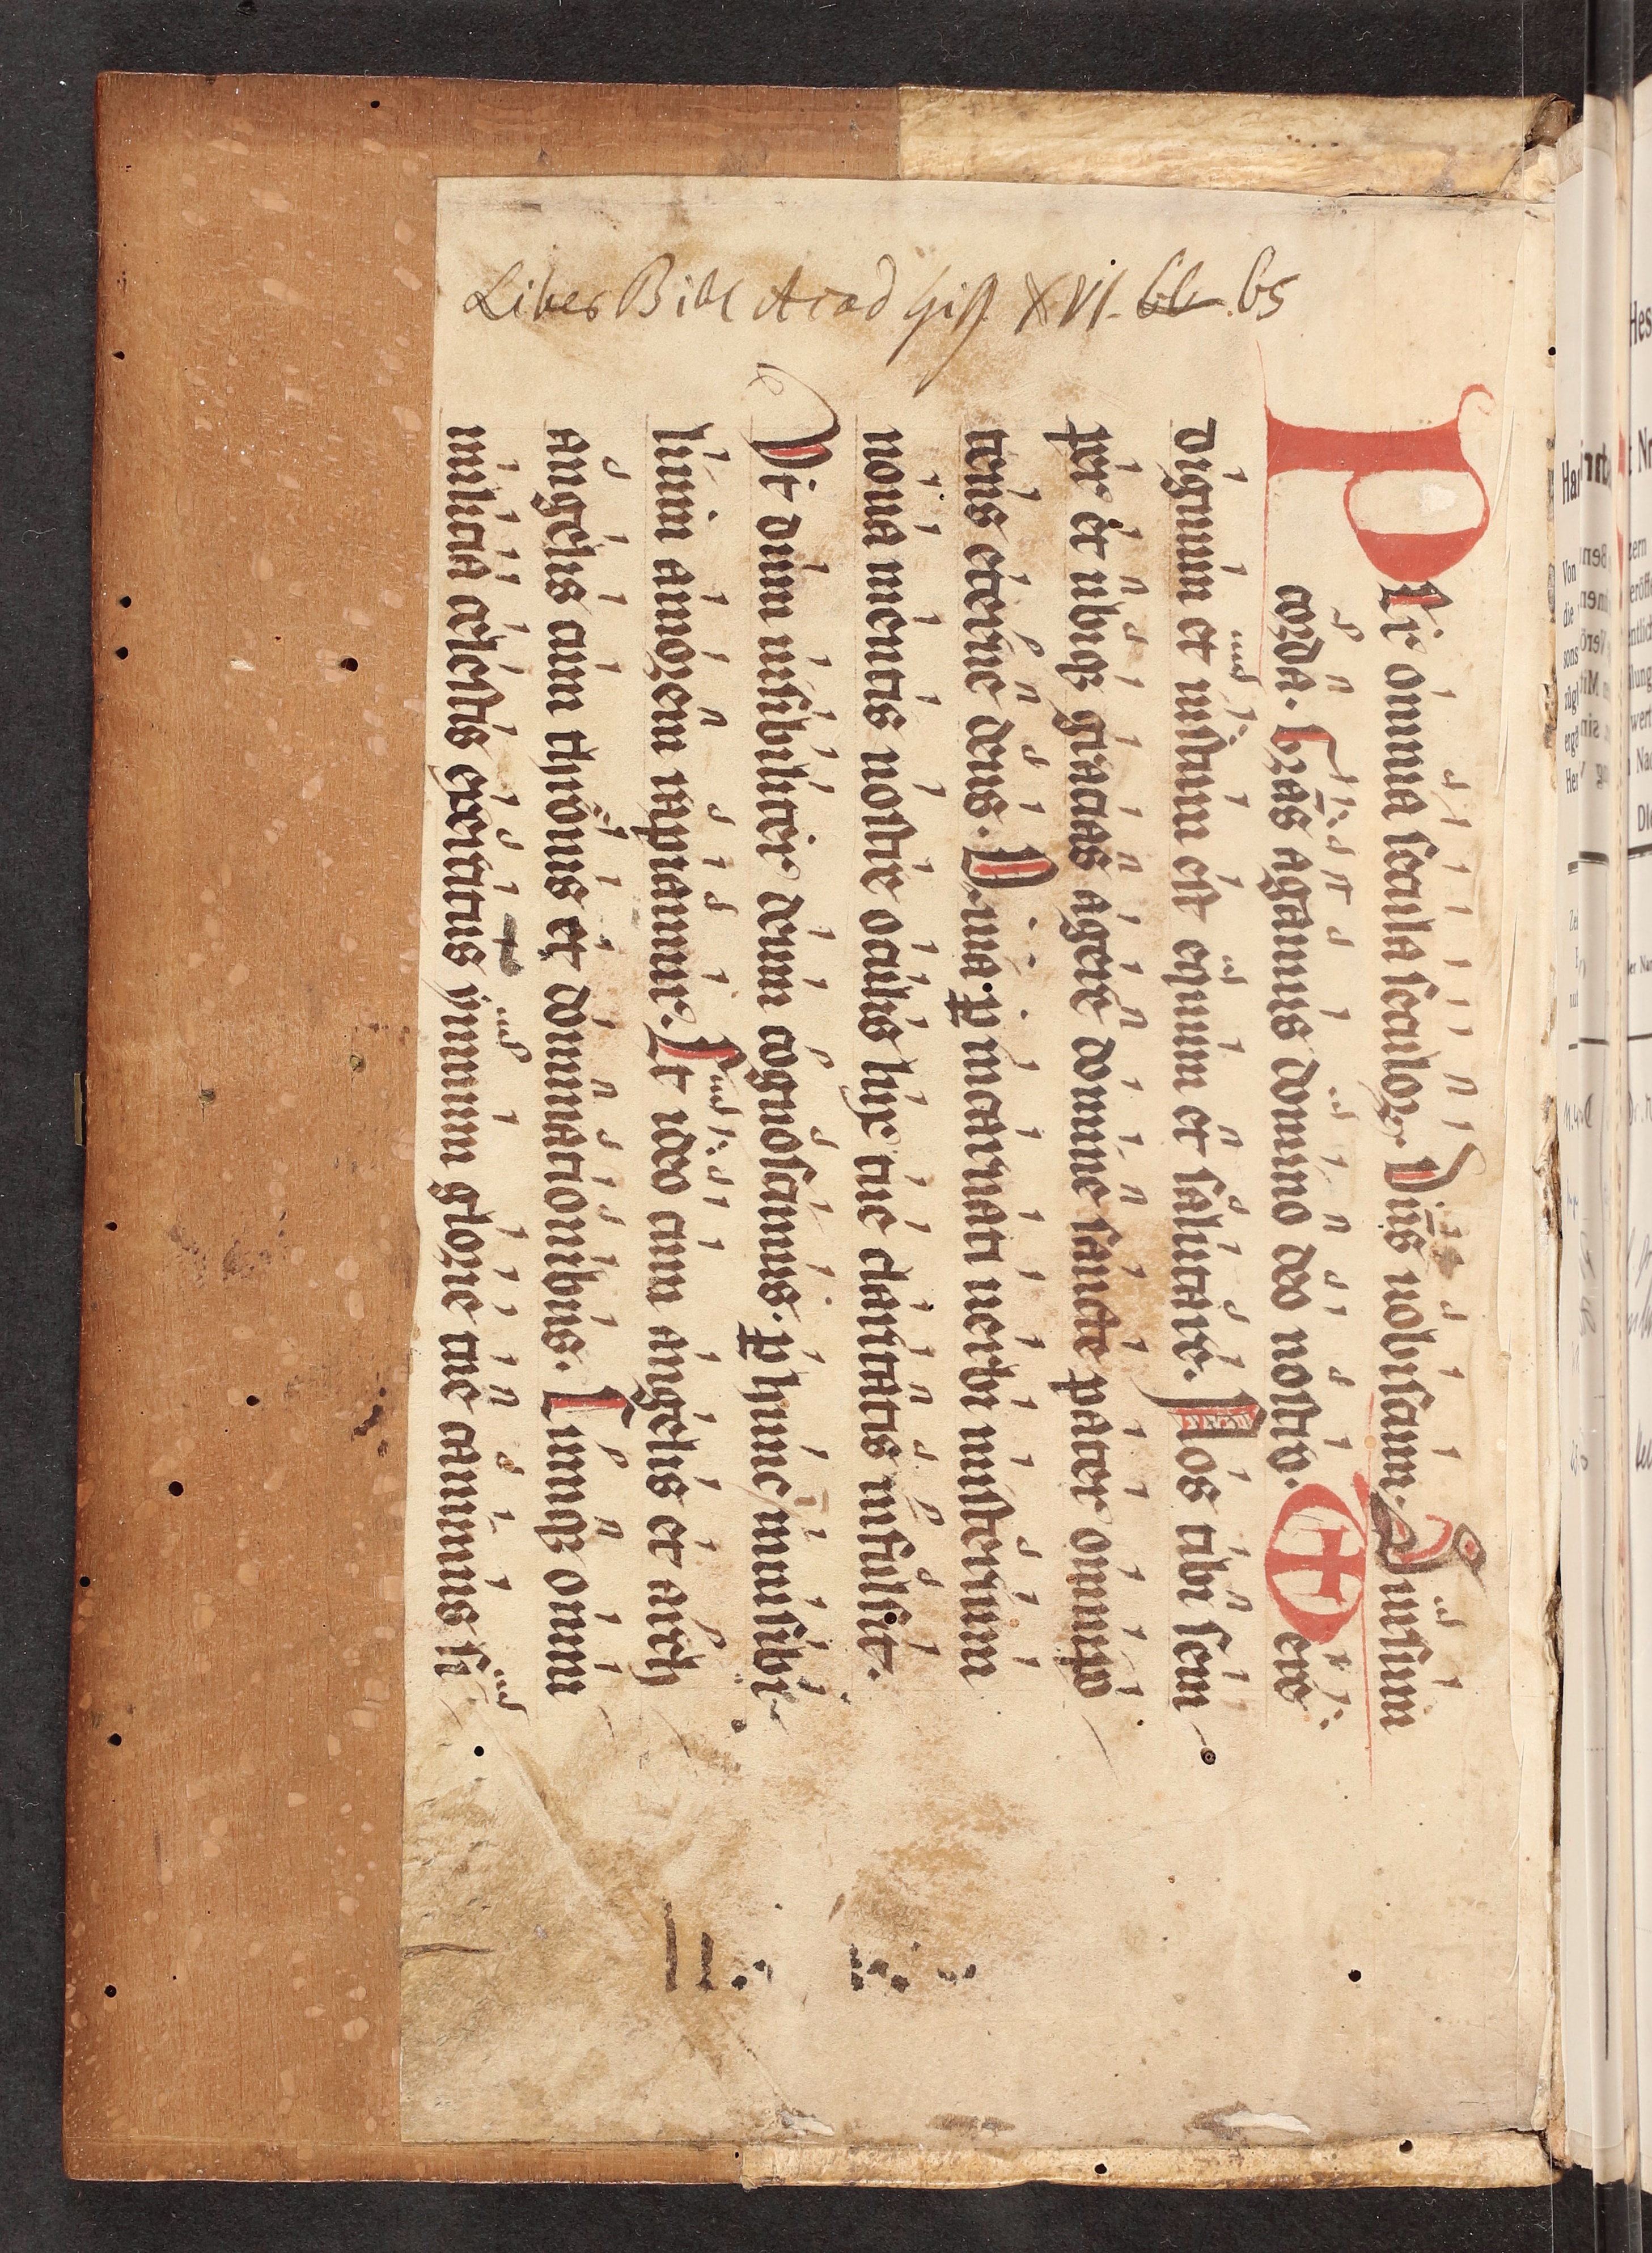 Liber Bibl Acad Giß. XVI. 66. 65
PEr omnia secula seculoꝝ. Dn̄s uobiscum. Sursum
corda. Gr̄as agamus domino deo nostro. UEre
dignum et iustum est equum et salutare. Nos tibi sem
per et ubiqꝫ gratias agere domine sancte pater omnipo
tens eterne deus. Quia ꝑ incarnati uerbi misterium
noua mentis nostre oculis lux tue claritatis infulsit.
Vt dum uisibiliter deum cognoscimus. ꝑ hunc inuisibi
lium amorem rapiamur. Et ideo cum angelis et arch
angelis cum thronis et dominationibus. Cumqꝫ omni
milicia celestis exercitus ympnum glorie tue canimus si